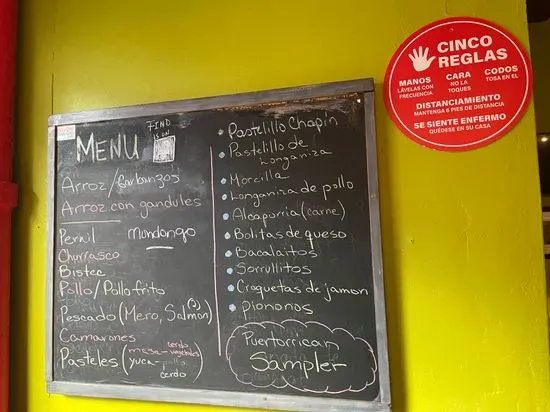 MENU
FIND
US ON
Arroz/Garbanzos
Arroz con gandules
Pernil Mondongo
Churrasco
Bistec
Pollo/Pollo frito
Pescado (Mero, Salmon)
Camarones
Pasteles (masa-vegetales
cerdo
yuca-
cerdo
Pastelillo Chapín
Pastelillo de
Longaniza
Morcilla
Longaniza de pollo
Alcapurria (carne)
Bolitas de queso
Bacalaitos
Sorrullitos
Croquetas de jamon
Piononos
Puertorrican
Sampler
CINCO
REGLAS
MANOS
LÁVELAS CON
FRECUENCIA
CARA
NO LA
TOQUES
CODOS
TOSA EN EL
DISTANCIAMIENTO
MANTENGA 6 PIES DE DISTANCIA
SE SIENTE ENFERMO
QUÉDESE EN SU CASA